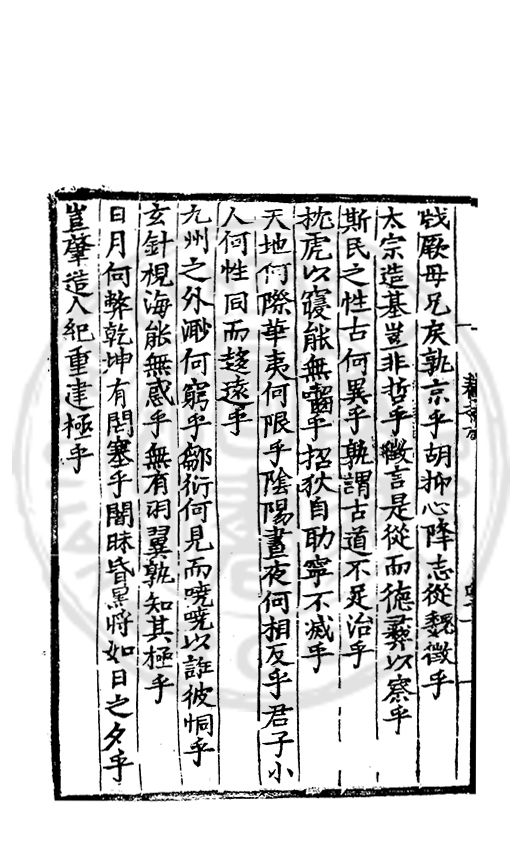 戕厥母兄戾孰京乎胡抑心降志從魏徵乎
太宗造基豈非哲乎徵言是從而德彝以察乎
斯民之性古何異乎孰謂古道不足治乎
枕虎以寢能無囓乎招狄自助寧不滅乎
天地何際華夷何限乎陰陽晝夜何相反乎君子小
人何性同而趍遠乎
九州之外渺何窮乎鄒衍何見而嘵嘵以誑彼恫乎
玄針視海能無惑乎無有羽翼孰知其極乎
日月何弊乾坤有閉塞乎闇昧昏黑將如日之夕乎
豈肇造人紀重建極乎